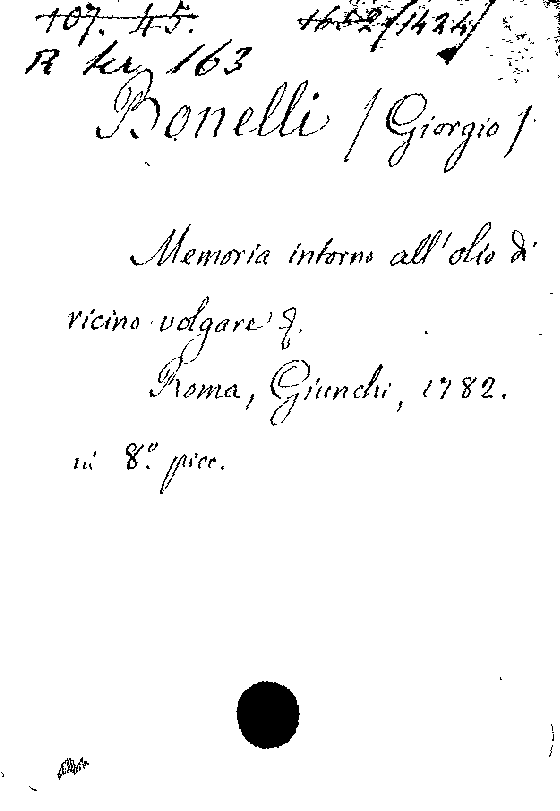 107. 45. 1652/1424/
R ter 163
Bonelli /Giorgio/
Memoria intorno all'olio di
ricino volgare &.
Roma, Giunchi, 1782.
in 8.º picc.